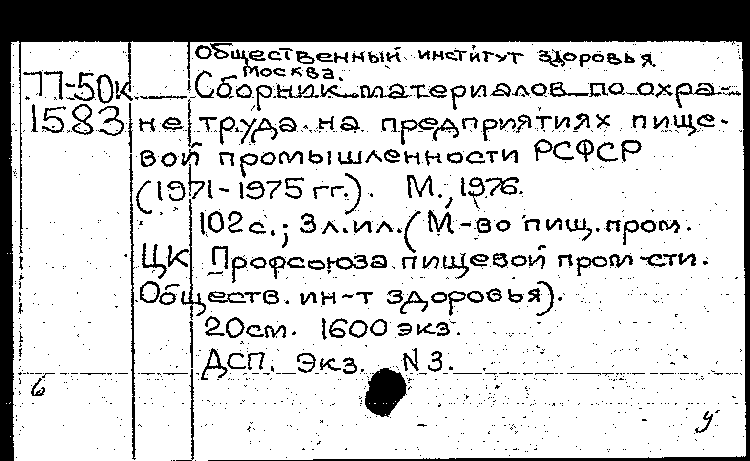 Общественный институт здоровья
Москва.
П-50к Сборник материалов по охра-
1583 не труда на предприятиях пище-
вой промышленности РСФСР
(1971-1975 гг.). М., 1976.
102 с.; 3 л. ил. (М-во пищ. пром.
ЦК Профсоюза пищевой пром-сти.
Обществ. ин-т здоровья).
20 см. 1600 экз.
ДСП. Экз. N 3.
6
у